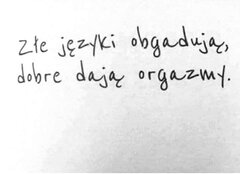 złe języki obgadują,
dobre dają orgazmy.